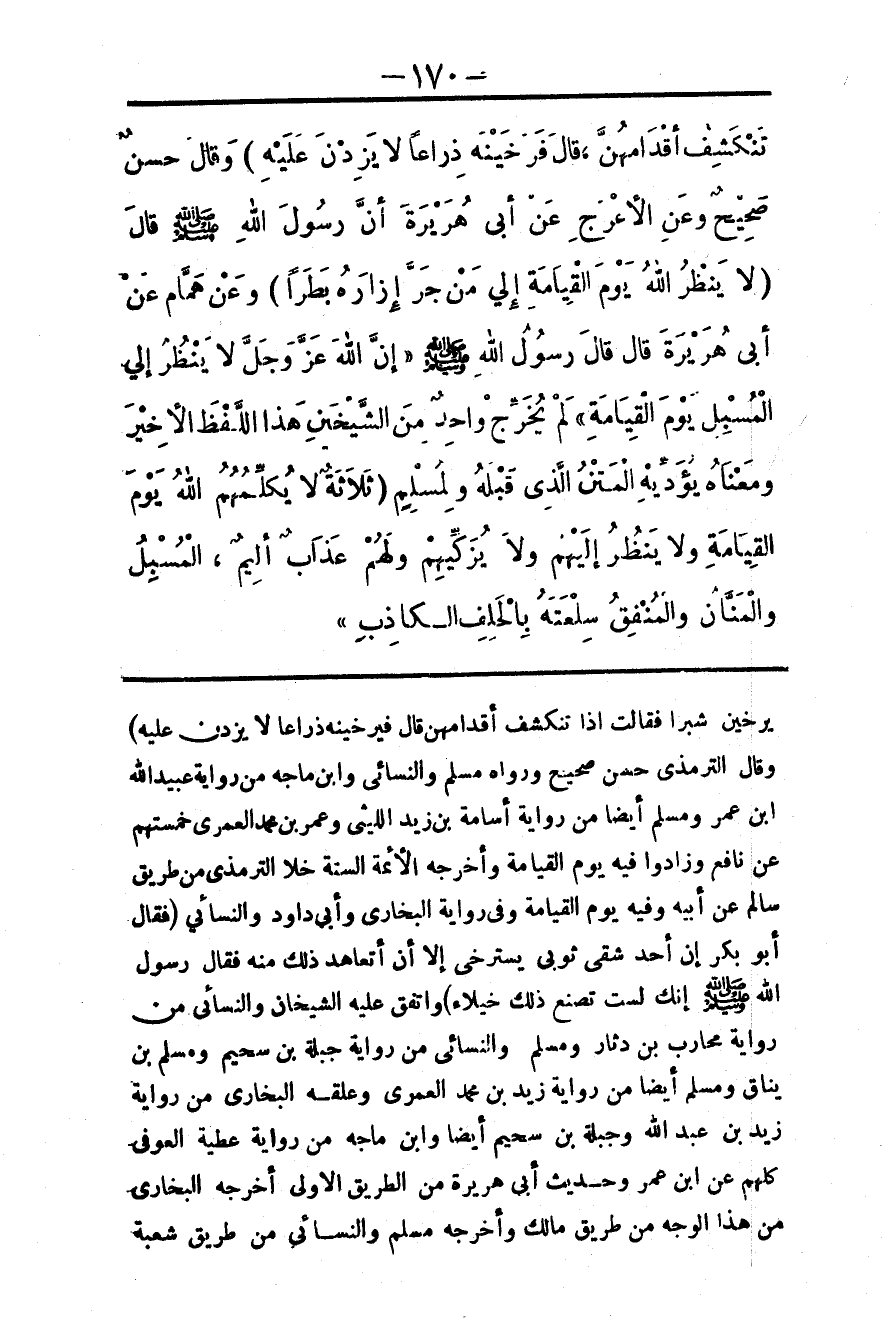 — ١٧٠ —
تَنْكَشِفُ أَقْدَامهُنَّ ، قالَ فَرَخَيْنَه ذِراعاً لا يَزِدْنَ عَلَيْهِ ) وَقالَ حسنٌ
صَحِيْحٌ وعَنِ الْأَعْرَجِ عَنْ أَبى هُرَيْرَةَ أَنَّ رسُولَ اللهِ ﷺ قالَ
( لا يَنظُرُ اللهُ يَوْمَ القْيامَةِ إلي مَنْ جرَّ إِزارَهُ بَطَرَاً ) وعَنْ هَمَّام عَنْ
أبى هُرَيْرَةَ قال قالَ رسوُلُ اللهِ ﷺ « إنَّ اللهَ عَزَّ وَجَلَّ لا يَنْظُرُ إلي
الْمُسْبِلِ يَوْمَ الْقِيَامَةِ» لَمْ يُخَرِّجْ واحِدٌ مِنَ الشَّيْخَينِ هذا اللَّفْظَ الْأَخِيْرَ
ومَعْنَاهُ يُؤَدِّيْهِ الْمَتْنُ الَّذِى قَبْلَهُ ولِمُسْلِمٍ ( ثَلَاثَةٌ لا يُكلِّمُهُم اللهُ يَوْمَ
القِيَامَةِ ولا يَنظُرُ إلَيْهِمْ ولاَ يُزَكِّيهِمْ ولَهُمْ عَذابٌ أليمٌ ، الْمُسْبِلُ
والْمَنَّانُ والمُنْفِقُ سِلْعَتَهُ بِالْحَلِفِ الكاذِبِ »
يرخين شبرا فقالت اذا تنكشف أقدامهن قال فيرخينه ذراعا لا يزدن عليه)
وقال الترمذى حسن صحيح ورواه مسلم والنسائى وابن ماجه من رواية عبيد الله
ابن عمر ومسلم أيضا من رواية أسامة بن زيد الليثى وعمر بن محمد العمرى خمستهم
عن نافع وزادوا فيه يوم القيامة وأخرجه الأئمة الستة خلا الترمذى من طريق
سالم عن أبيه وفيه يوم القيامة وفى رواية البخارى وأبي داود والنسائي (فقال
أبو بكر إن أحد شقى ثوبي يسترخى إلا أن أتعاهد ذلك منه فقال رسول
الله ﷺ إنك لست تصنع ذلك خيلاء) واتفق عليه الشيخان والنسائى من
رواية محارب بن دثار ومسلم والنسائى من رواية جبلة بن سحيم ومسلم بن
يناق ومسلم أيضا من رواية زيد بن محمد العمرى وعلقه البخارى من رواية
زيد بن عبد الله وجبلة بن سحيم أيضا وابن ماجه من رواية عطية العوفى
كلهم عن ابن عمر وحديث أبي هريرة من الطريق الاولى أخرجه البخارى
من هذا الوجه من طريق مالك وأخرجه مسلم والنسائي من طريق شعبة